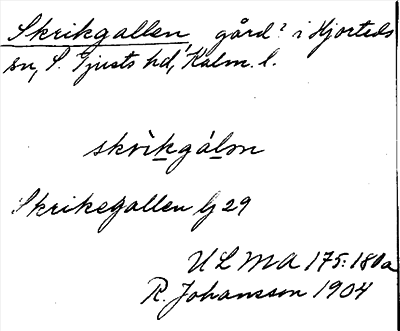 Skrikgallen gård? i Hjorteds
sn, S. Tjusts hd, Kalm. l.
skrìkgálən
Skrikegallen Gj 29
ULMA 175:180a
R. Johansson 1904